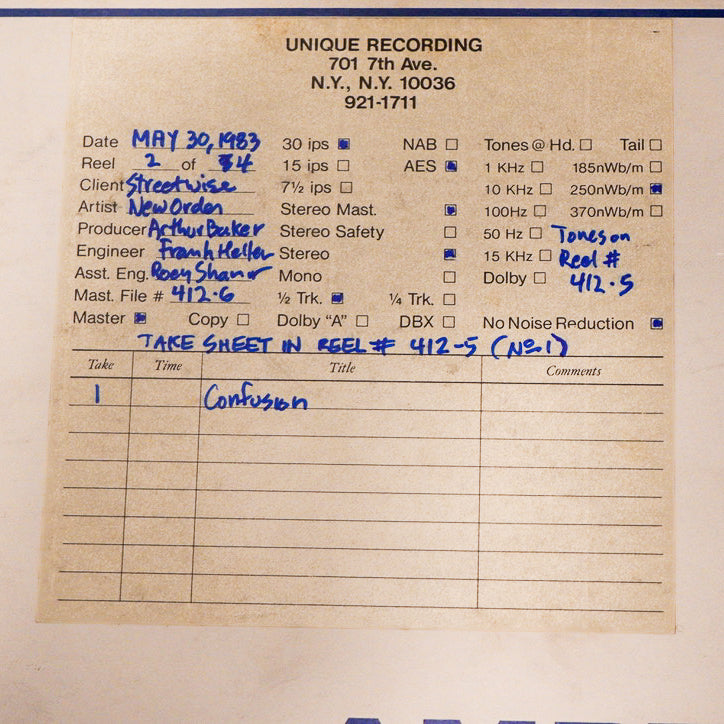 UNIQUE RECORDING
701 7th Ave.
N.Y., N.Y. 10036
921-1711
Date MAY 30, 1983 30 ips NAB Tones @ Hd. Tail
Reel 2 of 4 15 ips AES 1 KHz 185nWb/m
Client Streetwise 7½ ips 10 KHz 250nWb/m
Artist New Order Stereo Mast. 100Hz 370nWb/m
Producer Arthur Baker Stereo Safety 50 Hz Tones on
Engineer Frank Heller Stereo 15 KHz Reel #
Asst. Eng. Roey Shamir Mono Dolby 412-5
Mast. File # 412-6 ½ Trk. ¼ Trk.
Master Copy Dolby "A" DBX No Noise Reduction
TAKE SHEET IN REEL # 412-5 (No 1)
Take Time Title Comments
1 Confusion